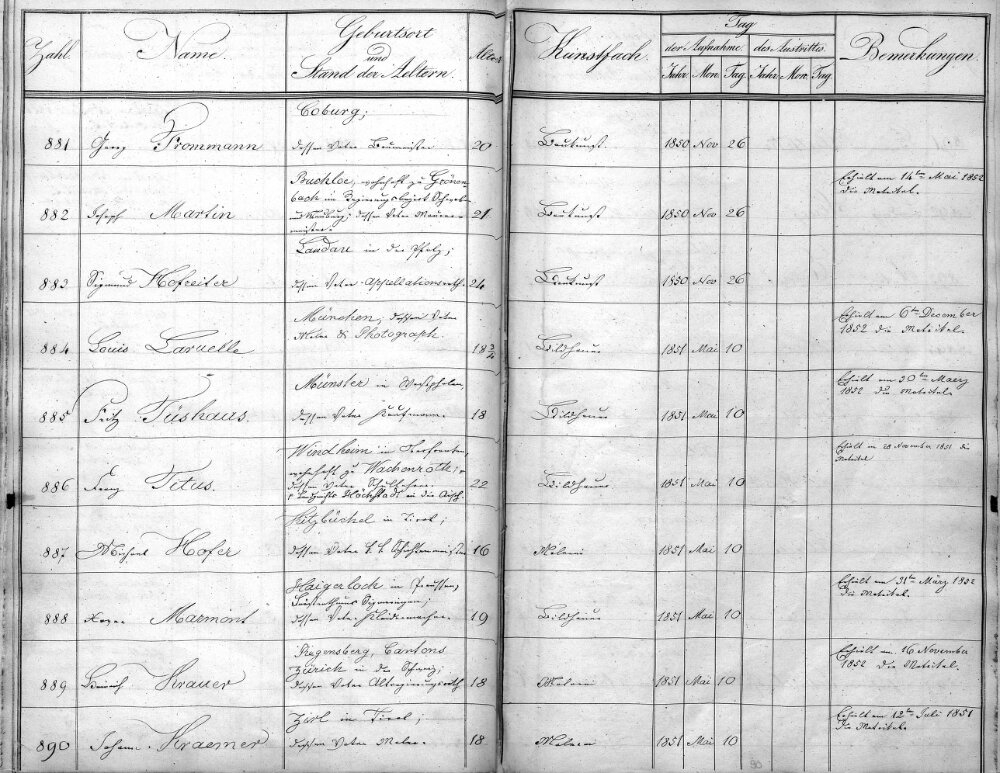 Zahl. Name. Geburtsort und Stand der Aeltern. Alter Kunstfach. Tag der Aufnahme des Austrittes Bemerkungen.
Jahr Mon. Tag Jahr Mon. Tag
Coburg;
881 Georg Frommann dessen Vater Baumeister 20 Baukunst. 1850 Nov 26
Buchloe, wohnhaft zu Grönen- Erhält am 14ten Mai 1852
bach im Regierungsbezirk Schwaben die Matrikel.
882 Joseph Martin und Neuburg; dessen Vater Maurer- 21 Baukunst. 1850 Nov 26
meister.
Landau in der Pfalz;
883 Sigmund Hofreiter dessen Vater Appellationsrath. 24 Baukunst 1850 Nov 26
München, dessen Vater Erhält am 6ten December
Maler & Photograph. 1852 die Matrikel.
884 Louis Laruelle 18 3/4 Bildhauer 1851 Mai 10
Münster in Westphalen, Erhält am 30ten Maerz
1852 die Matrikel.
885 Fritz Tüshaus. dessen Vater Kaufmann. 18 Bildhauer. 1851 Mai 10
Windheim in Oberfranken, Erhält am 28 November 1851 die
wohnhaft zu Wachenroth; Matrikel
886 Franz Titus. dessen Vater Schullehrer. 22 Bildhauer. 1851 Mai 10
Höchstadt an der Aisch.
Kitzbüchel in Tirol;
887 Michael Hofer dessen Vater k. k. 16 Malerei 1851 Mai 10
Haigerloch in Preussen, Erhält am 31ten März 1852
Fürstenthums Sigmaringen; die Matrikel.
888 Xaver Marmont dessen Vater Kleidermacher. 19 Bildhauer 1851 Mai 10
Regensberg, Cantons Erhält am 16 November
Zürich in der Schweiz; 1852 die Matrikel.
889 Heinrich Krauer dessen Vater Altregierungsrath 18 Malerei 1851 Mai 10
Zirl in Tirol; Erhält am 12ten Juli 1851
die Matrikel.
890 Johann Kraemer dessen Vater Maler. 18 Malerei 1851 Mai 10
90